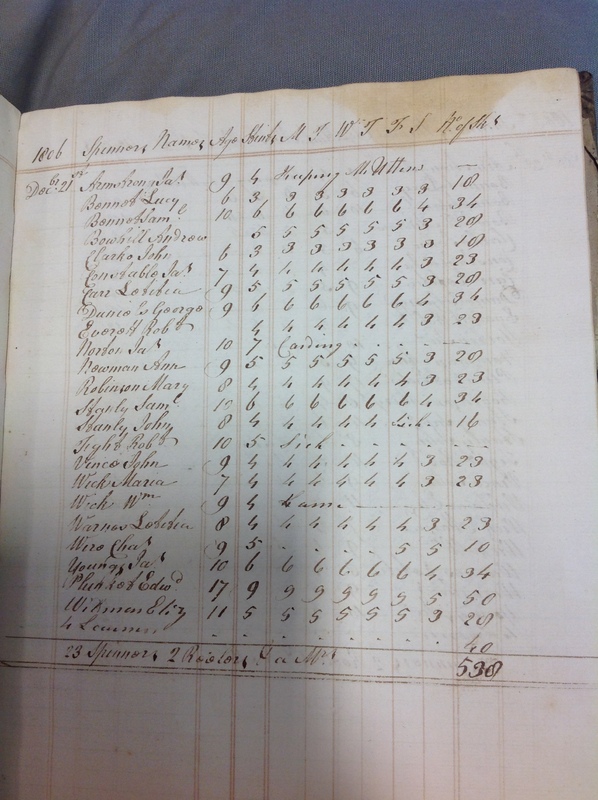 1806 Spinners Names Age Stint M T W T F S No of Sks
Decbr 21st Armstrong Jas 9 4 Keeping Mr Uttens —
Bennet Lucy 6 3 3 3 3 3 3 3 18
Bennet Saml 10 6 6 6 6 6 6 4 34
Bowhill Andrew 5 5 5 5 5 5 3 28
Clarke John 6 3 3 3 3 3 3 3 18
Constable Jas 7 4 4 4 4 4 4 3 23
Carr Letitia 9 5 5 5 5 5 5 3 28
Daniels George 9 6 6 6 6 6 6 4 34
Everett Robt 4 4 4 4 4 4 3 23
Norton Jas 10 7 Carding
Newman Ann 9 5 5 5 5 5 5 3 28
Robinson Mary 8 4 4 4 4 4 4 3 23
Stanly Saml 10 6 6 6 6 6 6 4 34
Stanly John 8 4 4 4 4 4 Sick 16
Tight Robt 10 5 Sick
Vince John 9 4 4 4 4 4 4 3 23
Wick Maria 7 4 4 4 4 4 4 3 23
Wick Wm 9 4 Lame
Warnes Letitia 8 4 4 4 4 4 4 3 23
Wire Chas 9 5 5 5 10
Youngs Jas 10 6 6 6 6 6 6 4 34
Plunket Edwd 17 9 9 9 9 9 9 5 50
Wikmen Eliz 11 5 5 5 5 5 5 3 28
4 40
23 Spinners 2 Reelers 538